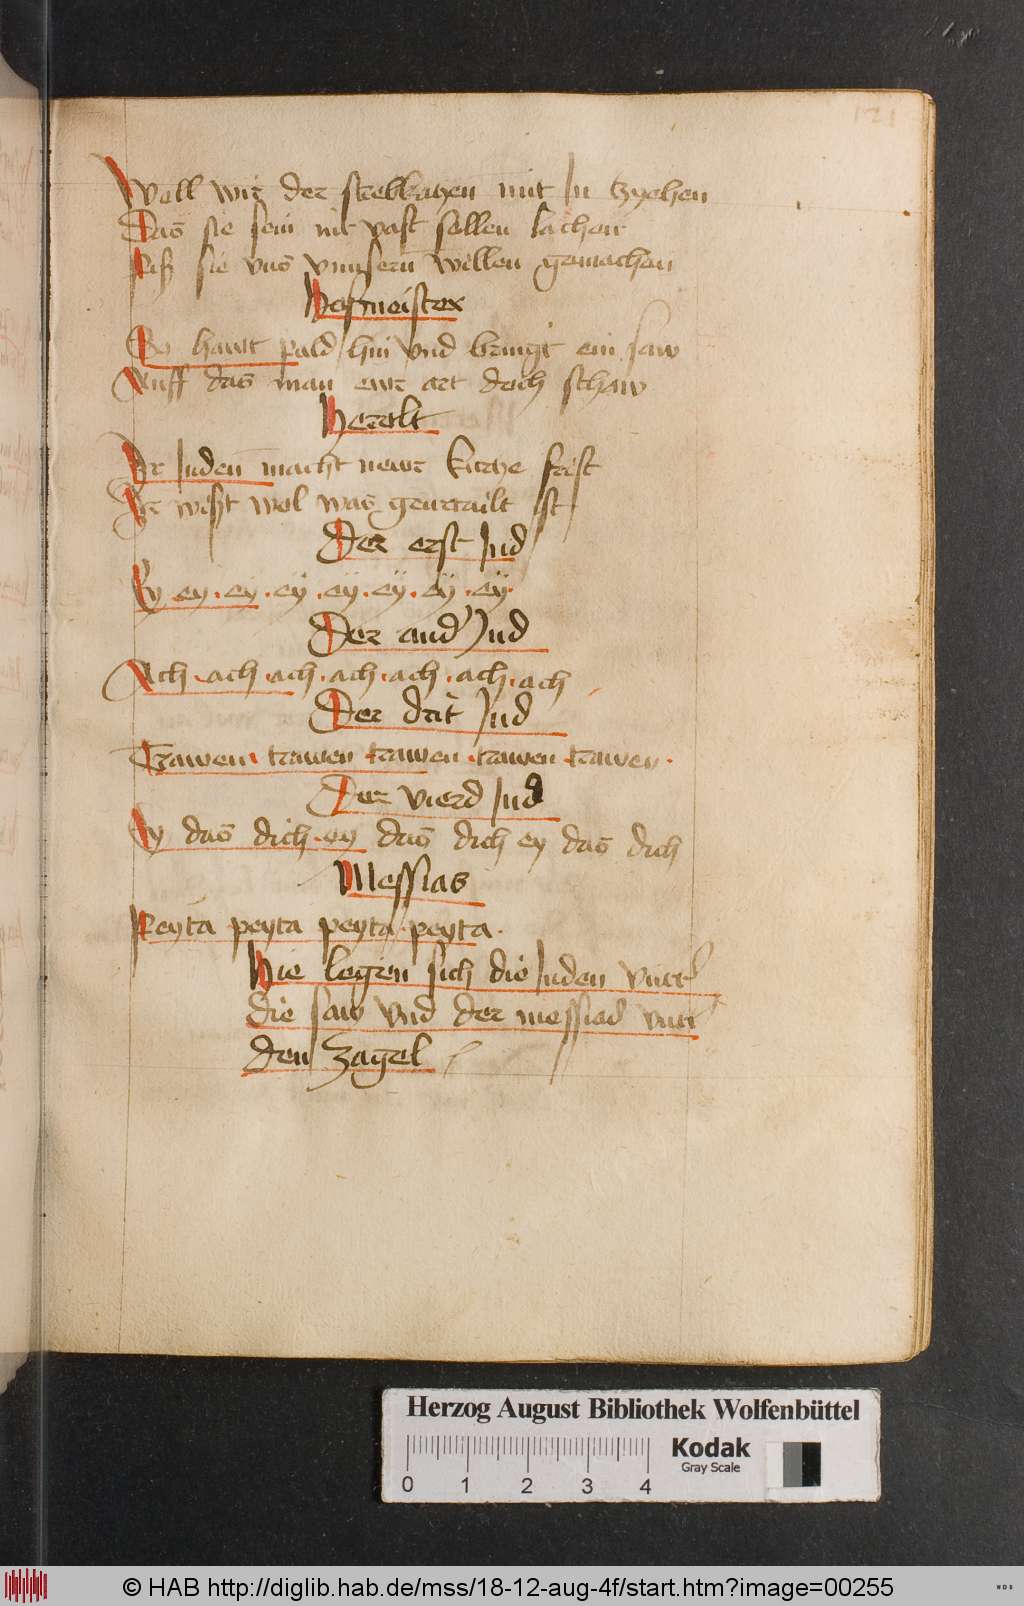 121
Woll wir der strebkaczen mit In Zyehen
Das sie sein nit vast sollen lachen
sie vns vnnsern willen gemachen
Hofmeister
So hawt pald hin vnd bringt ein saw
Auff das man ewr art doch schaw
Heralt
Ir Juden macht newr kurcze frist
Ir wißt wol was geurtailt ist
Der erst Jud
Ey ey · ey · ey · ey · ey · ey · ey
Der and' Jud
Ach · ach · ach · ach · ach · ach · ach
Der drit Jud
Trawen · trawen trawen · trawen trawen ·
Der vierd Jud
Ey das dich · ey das dich ey das dich
Messias
Peyta peyta peyta · peyta ·
Hie legen sich die Juden vnter
die saw vnd der messias vnter
den Zagel
Herzog August Bibliothek Wolfenbüttel
Kodak
Gray Scale
0 1 2 3 4
© HAB http://diglib.hab.de/mss/18-12-aug-4f/start.htm?image=00255